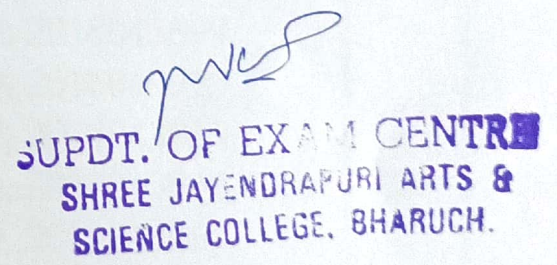 SUPDT. OF EXAM CENTRE
SHREE JAYENDRAPURI ARTS &
SCIENCE COLLEGE, BHARUCH.